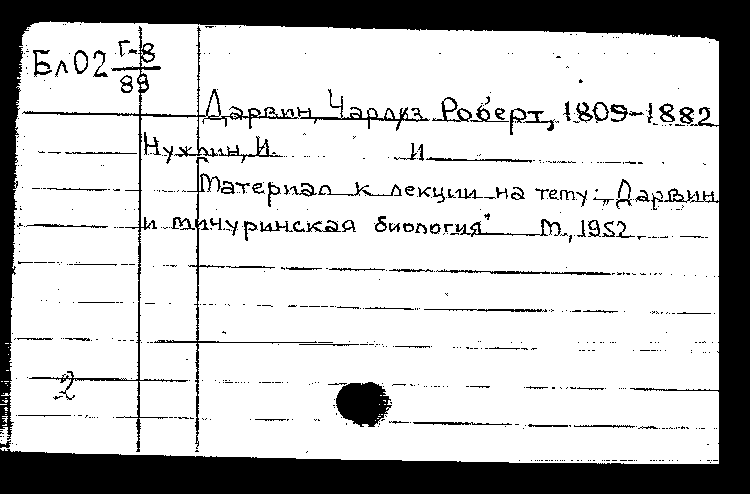 Бл02 Г-8/89
Дарвин, Чарлз Роберт, 1809-1882
Нуждин, И. И
Материал к лекции на тему: „Дарвин
и мичуринская биология" М., 1952.
2